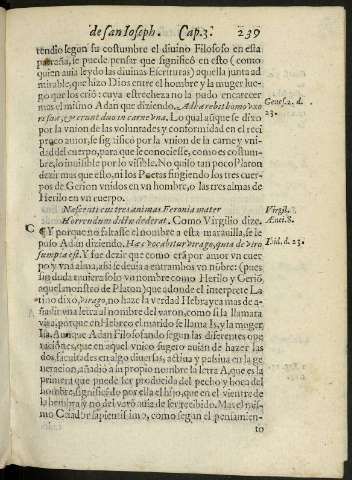 de San Ioseph. Cap. 3. 239
tendio segun su costumbre el diuino Filosofo en esta
patraña, se puede pensar que significó en esto (como
quien auia leydo las diuinas Escrituras) aquella junta ad
mirable, que hizo Dios entre el hombre y la muger lue-
go que los crió: cuya estrecheza no la pudo encarecer
mas el mismo Adan que diziendo, Adhærebit homo vxo
ri suæ, & erunt duo in carne vna. Lo qual aũque se dixo
por la vnion de las voluntades y conformidad en el reci
proco amor, se significó por la vnion de la carne y vni-
dad del cuerpo, para que se conociesse, como es costum-
bre, lo inuisible por lo visible. No quiso tan poco Platon
dezir mas que esto, ni los Poetas fingiendo los tres cuer-
pos de Gerion vnidos en vn hombre, o las tres almas de
Herilo en vn cuerpo.
Genes. 2. d.
23.
Nascenti cui tres animas Feronia mater
Horrendum dictu dederat. Como Virgilio dize.
Virgil.
Aenei. 8.
¶ Y porque no faltasse el nombre a esta marauilla, se le
puso Adan diziendo. Hæc vocabitur virago, quia de viro
sumpta est. Y fue dezir que como erã por amor vn cuer
po y vna alma, assi se deuia a entrambos vn nõbre: (pues
sin duda tuuiera solo vn nombre como Herilo y Geriõ,
aquel monstro de Platon) y que adonde el interprete La
tino dixo, virago, no haze la verdad Hebrayca mas de a-
ñadir vna letra al nombre del varon, como si la llamara
vira, porque en Hebreo el marido se llama Is, y la muger
Isa. Aunque Adan Filosofando segun las diferentes ope
raciones, que en aquel vnico sugeto auiẽ de hazer las
dos facultades en algo diuersas, actiua y passiua en la ge
neracion, añadio a su propio nombre la letra A, que es la
primera que puede ser producida del pecho y boca del
hombre, significãdo por ella el hijo, que en el vientre de
la hembra y no del varõ auia de ser recibido. Mas el mis-
mo Criador sapientissimo, como segun el pensamien-
to
Ibid. d. 23.